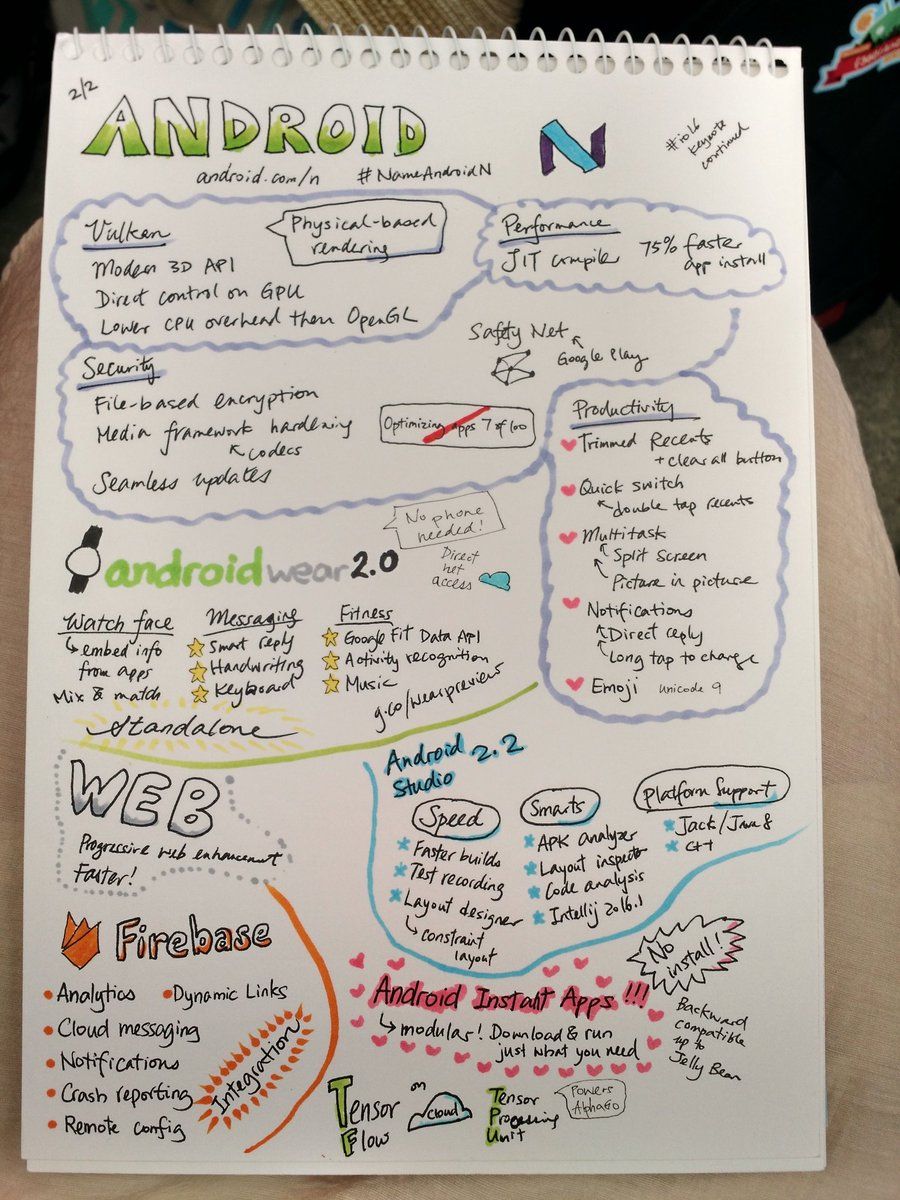 2/2
ANDROID
N
#io16
keynote
continued
android.com/n #NameAndroidN
Vulkan
Physical-based
rendering
Modern 3D API
Direct control on GPU
Lower CPU overhead then OpenGL
Performance
JIT compiler
75% faster
app install
Safety Net
Google Play
Security
File-based encryption
Media framework hardening
codecs
Seamless updates
Optimizing apps 7 of 100
Productivity
Trimmed Recents
+ clear all button
Quick switch
double tap recents
Multitask
Split screen
Picture in picture
Notifications
Direct reply
Long tap to change
Emoji Unicode 9
androidwear2.0
No phone
needed!
Direct
net
access
Watch face
embed info
from apps
Mix & match
Messaging
Smart reply
Handwriting
Keyboard
Fitness
Google Fit Data API
Activity recognition
Music
g.co/wearpreview
Standalone
WEB
Progressive web enhancement
Faster!
Android
Studio 2.2
Speed
Faster builds
Test recording
Layout designer
constraint
layout
Smarts
APK analyzer
Layout inspector
Code analysis
Intellij 2016.1
Platform Support
Jack/Java 8
C++
Firebase
Analytics
Dynamic Links
Cloud messaging
Notifications
Crash reporting
Remote config
Integration
Android Instant Apps !!!
modular! Download & run
just what you need
No
install!
Backward
compatible
up to
Jelly Bean
Tensor
Flow
on
cloud
Tensor
Processing
Unit
Powers
AlphaGo